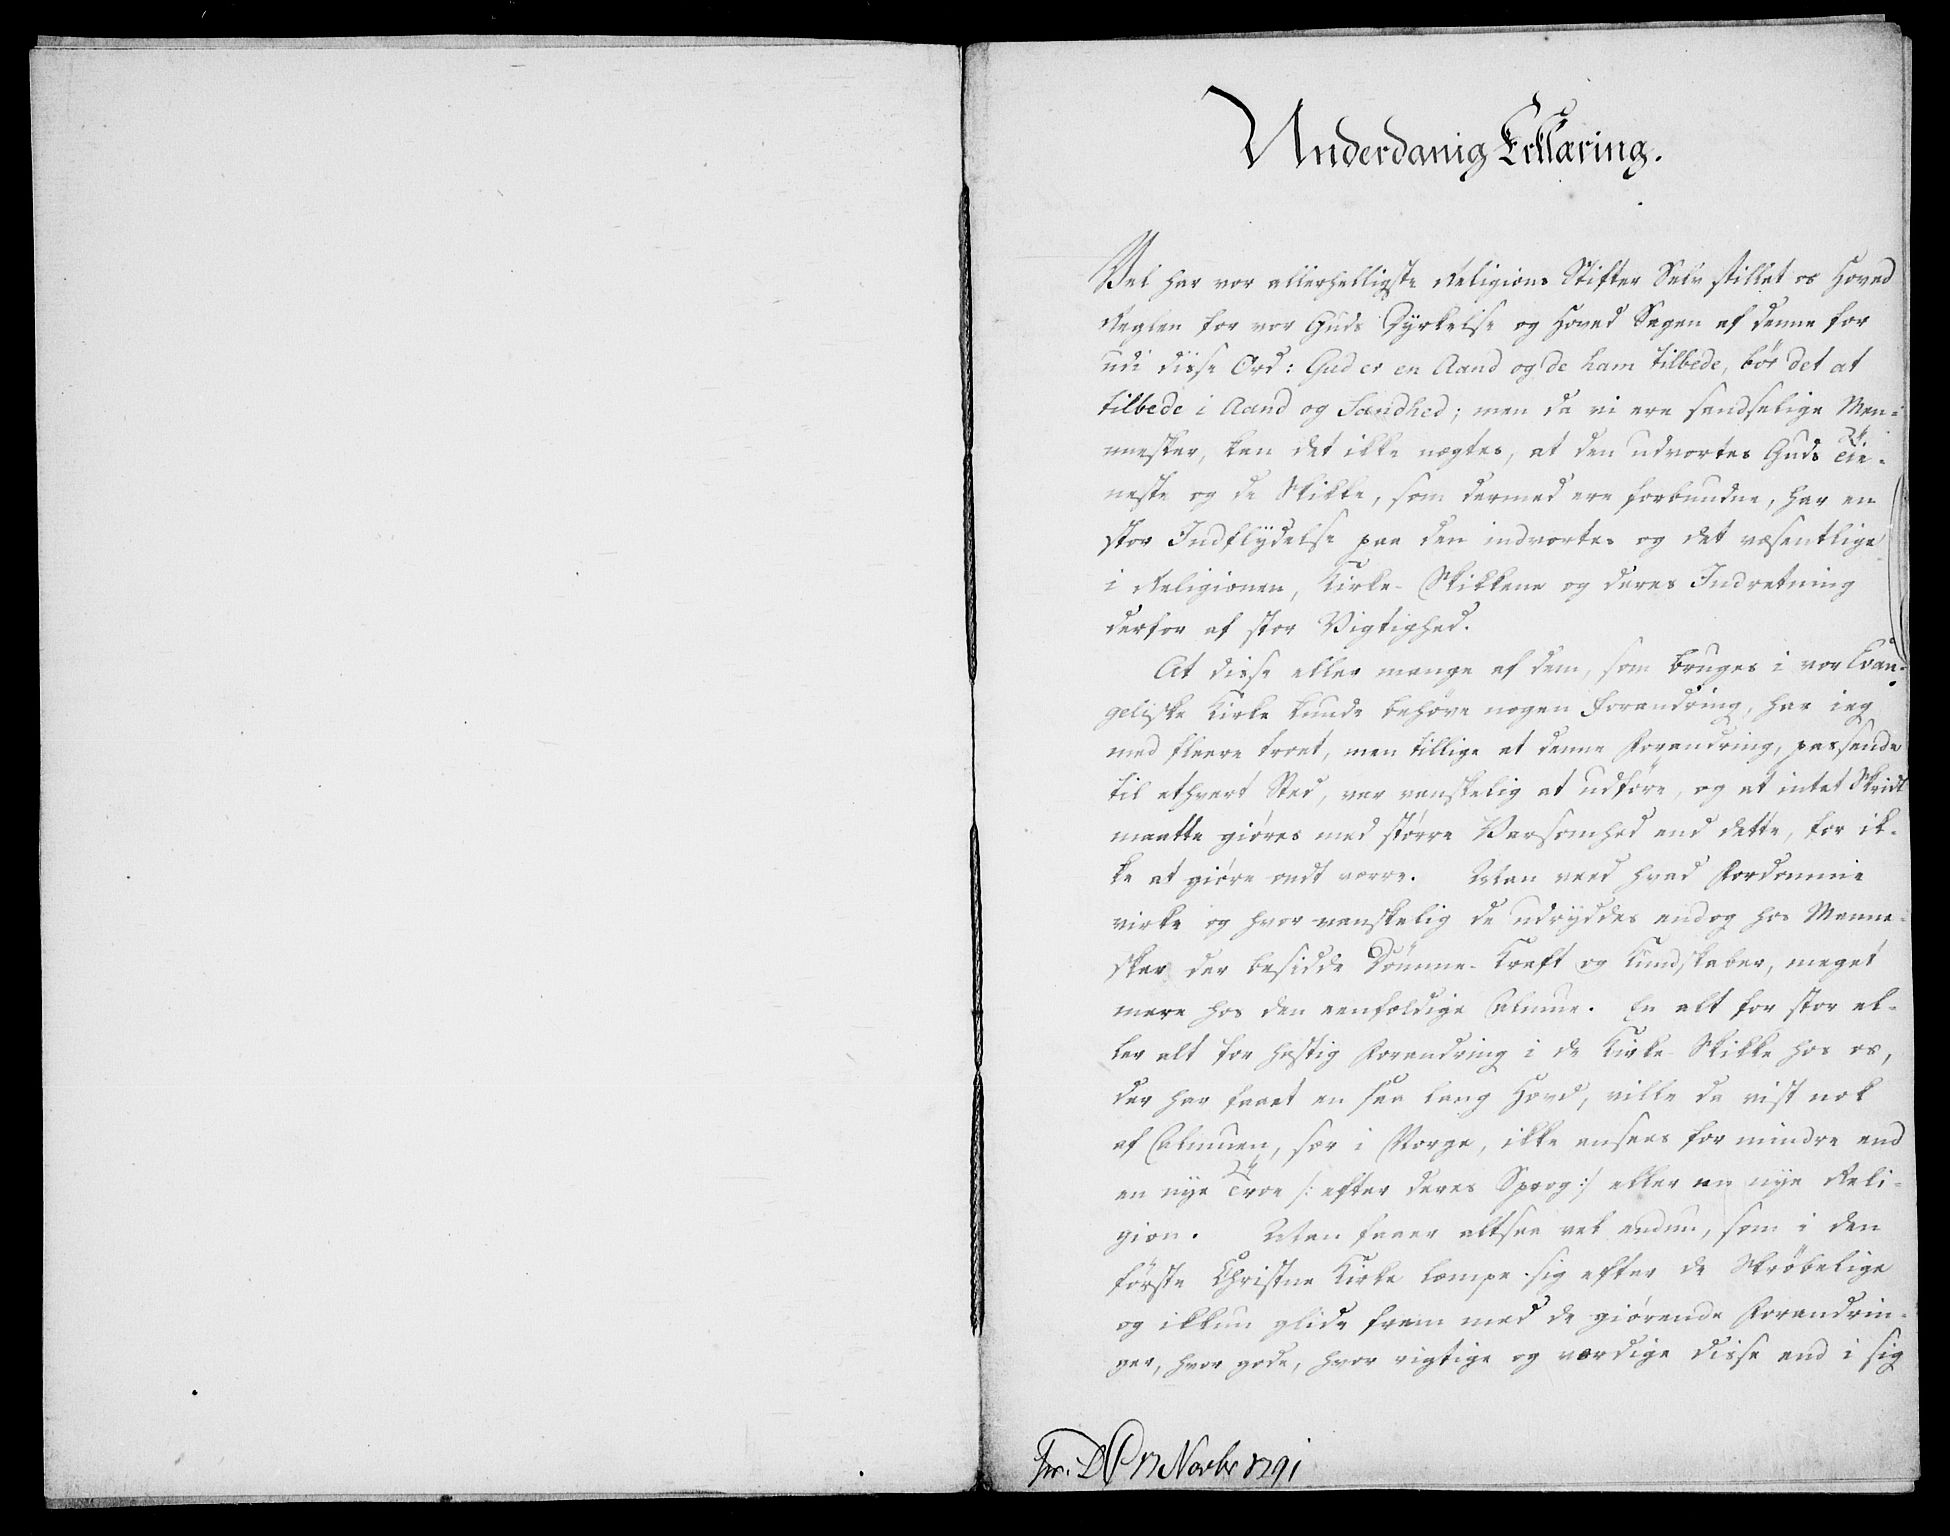 Underdanig Erklæring.
Vel har vor allerhelligste Religions Stifter Selv stillet os Hoved
Reglen for vor Guds Dyrkelse og Hoved Sagen af denne for
udi disse Ord: Gud er en Aand og de ham tilbede, bør det at
tilbede i Aand og Sandhed; men da vi ere sandselige Men-
nesker, kan det ikke nægtes, at den udvortes Guds Tie-
neste og de Skikke, som dermed ere forbundne, har en
stor Indflydelse paa den indvortes og det væsentlige
i Religionen, Kirke-Skikkene og deres Indretning
derfor af stor Vigtighed.
At disse eller mange af dem, som bruges i vor Evan-
geliske Kirke kunde behøve nogen Forandring, har ieg
med fleere troet, men tillige at denne Forandring, passende
til ethvert Sted, var vanskelig at udføre, og at intet Skridt
maatte giøres med større Varsomhed end dette, for ik-
ke at giøre ondt værre. Man veed hvad Fordomme
virke og hvor vanskelig de udryddes endog hos Menne-
sker der besidde Dømme-Kraft og Kundskaber, meget
mere hos den eenfoldige Almue. En alt for stor el-
ler alt for hastig Forandring i de Kirke-Skikke hos os,
der har faaet en saa lang Hævd, ville da vist nok
af Almuen, sær i Norge, ikke ansees for mindre end
en nye Troe /: efter deres Sprog :/ eller en nye Reli-
gion. Man faaer altsaa vel endnu, som i den
første Christne Kirke læmpe sig efter de Skrøbelige
og ikkun glide frem med de giørende Forandrin-
ger, hvor gode, hvor rigtige og værdige disse end i sig
17 Novbr 1791